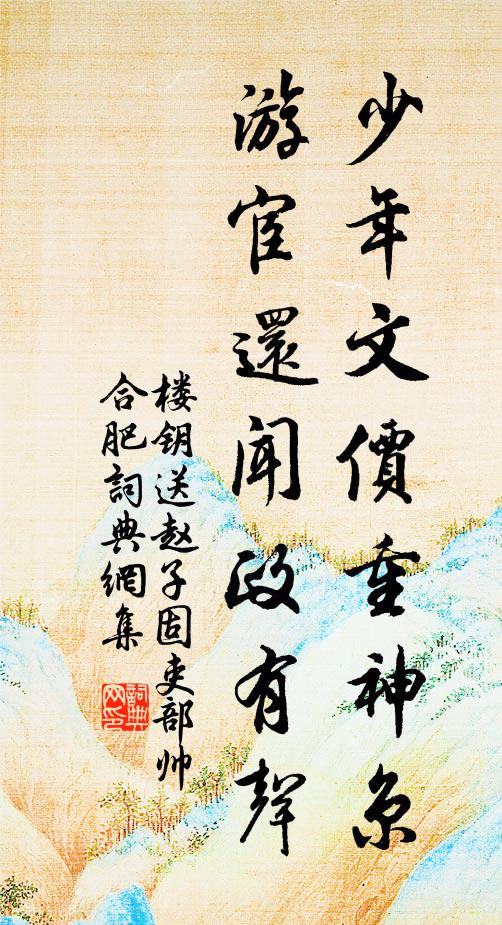 少年文價重神京
游宦還闻政有聲
楼钥送赵子固吏部帅
合肥詞典網集
詞典
网印